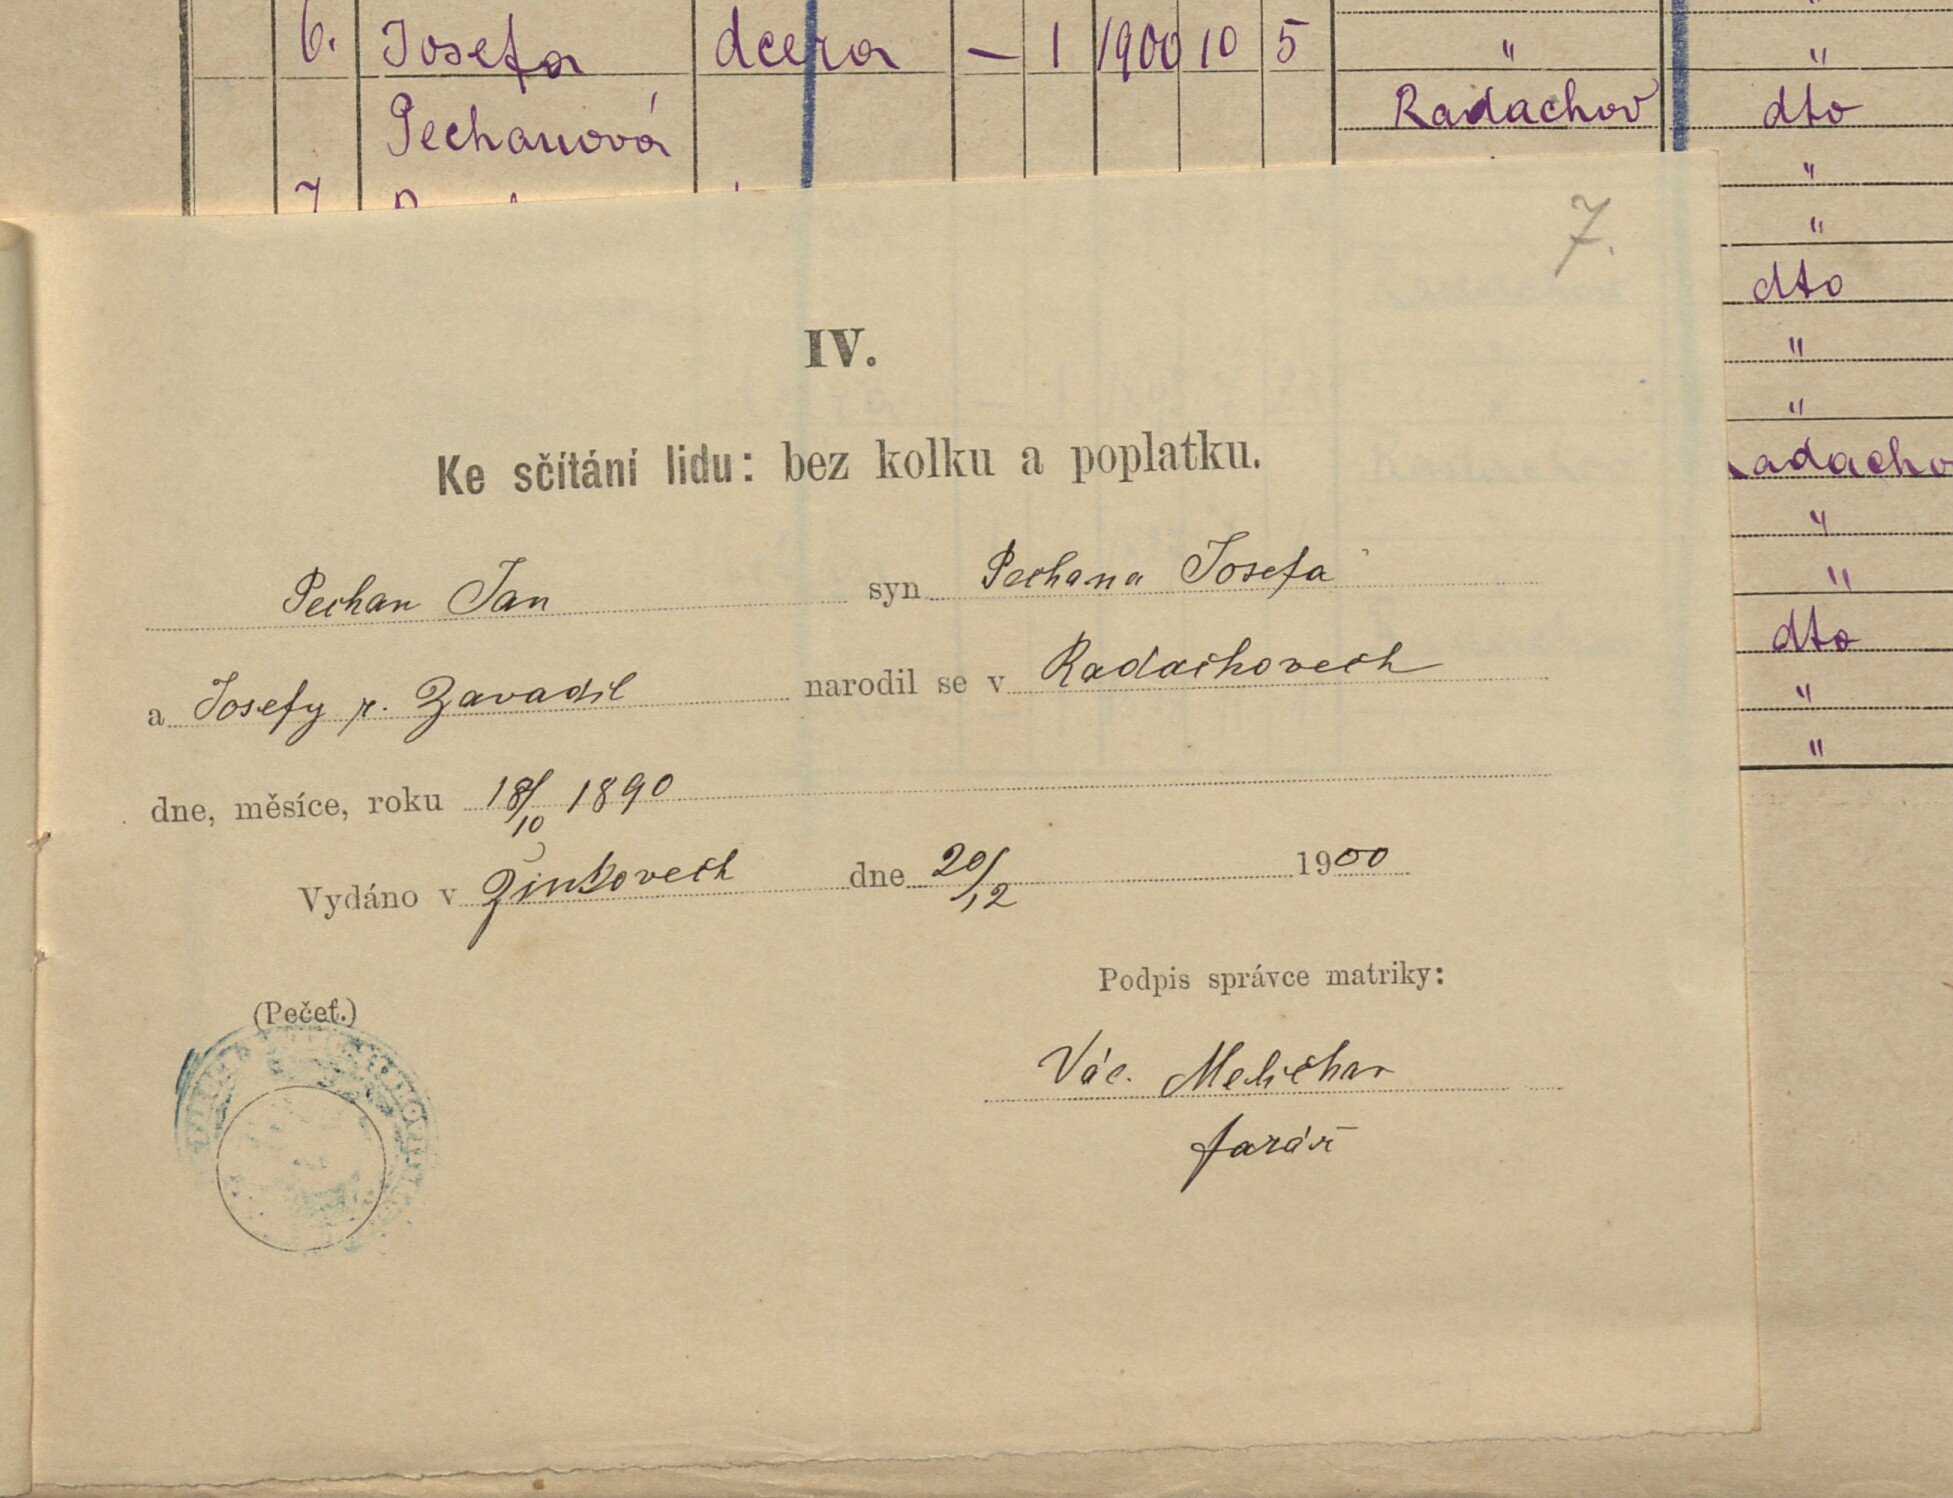 6. Josefa dcera — 1 1900 10 5 " "
Pechanová Radachov dto
7 "
7. "
dto
IV. "
"
Ke sčítání lidu: bez kolku a poplatku. adacho
"
Pechan Jan syn Pechana Josefa "
a Josefy r. Zavadil narodil se v Radachovech dto
"
"
dne, měsíce, roku 18/10 1890
Vydáno v Žinkovech dne 20/12 1900
Podpis správce matriky:
(Pečeť.)
Vác. Melichar
farář